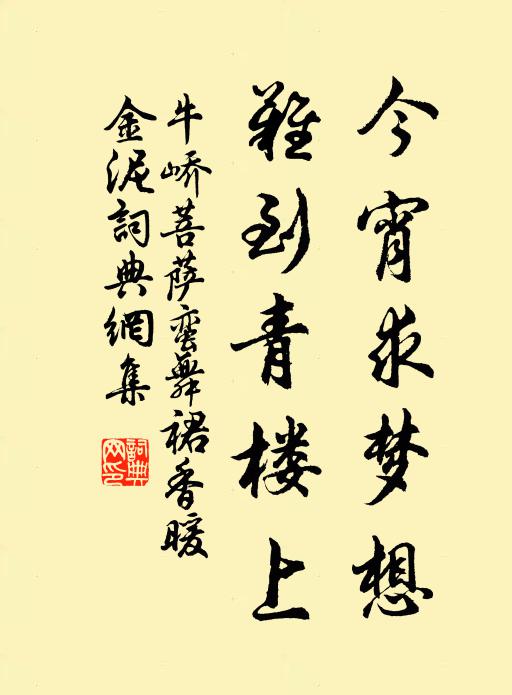 今宵求梦想
难到青楼上
牛峤菩萨蛮舞裙香暖
金泥詞典網集
詞典
网印